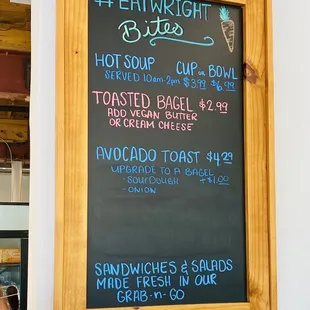 #EATWRIGHT
Bites
HOT SOUP CUP OR BOWL
SERVED 10am-2pm $3.99 $6.99
TOASTED BAGEL $2.99
ADD VEGAN BUTTER
OR CREAM CHEESE
AVOCADO TOAST $4.29
UPGRADE TO A BAGEL
- SOURDOUGH +$1.00
- ONION
SANDWICHES & SALADS
MADE FRESH IN OUR
GRAB-n-GO